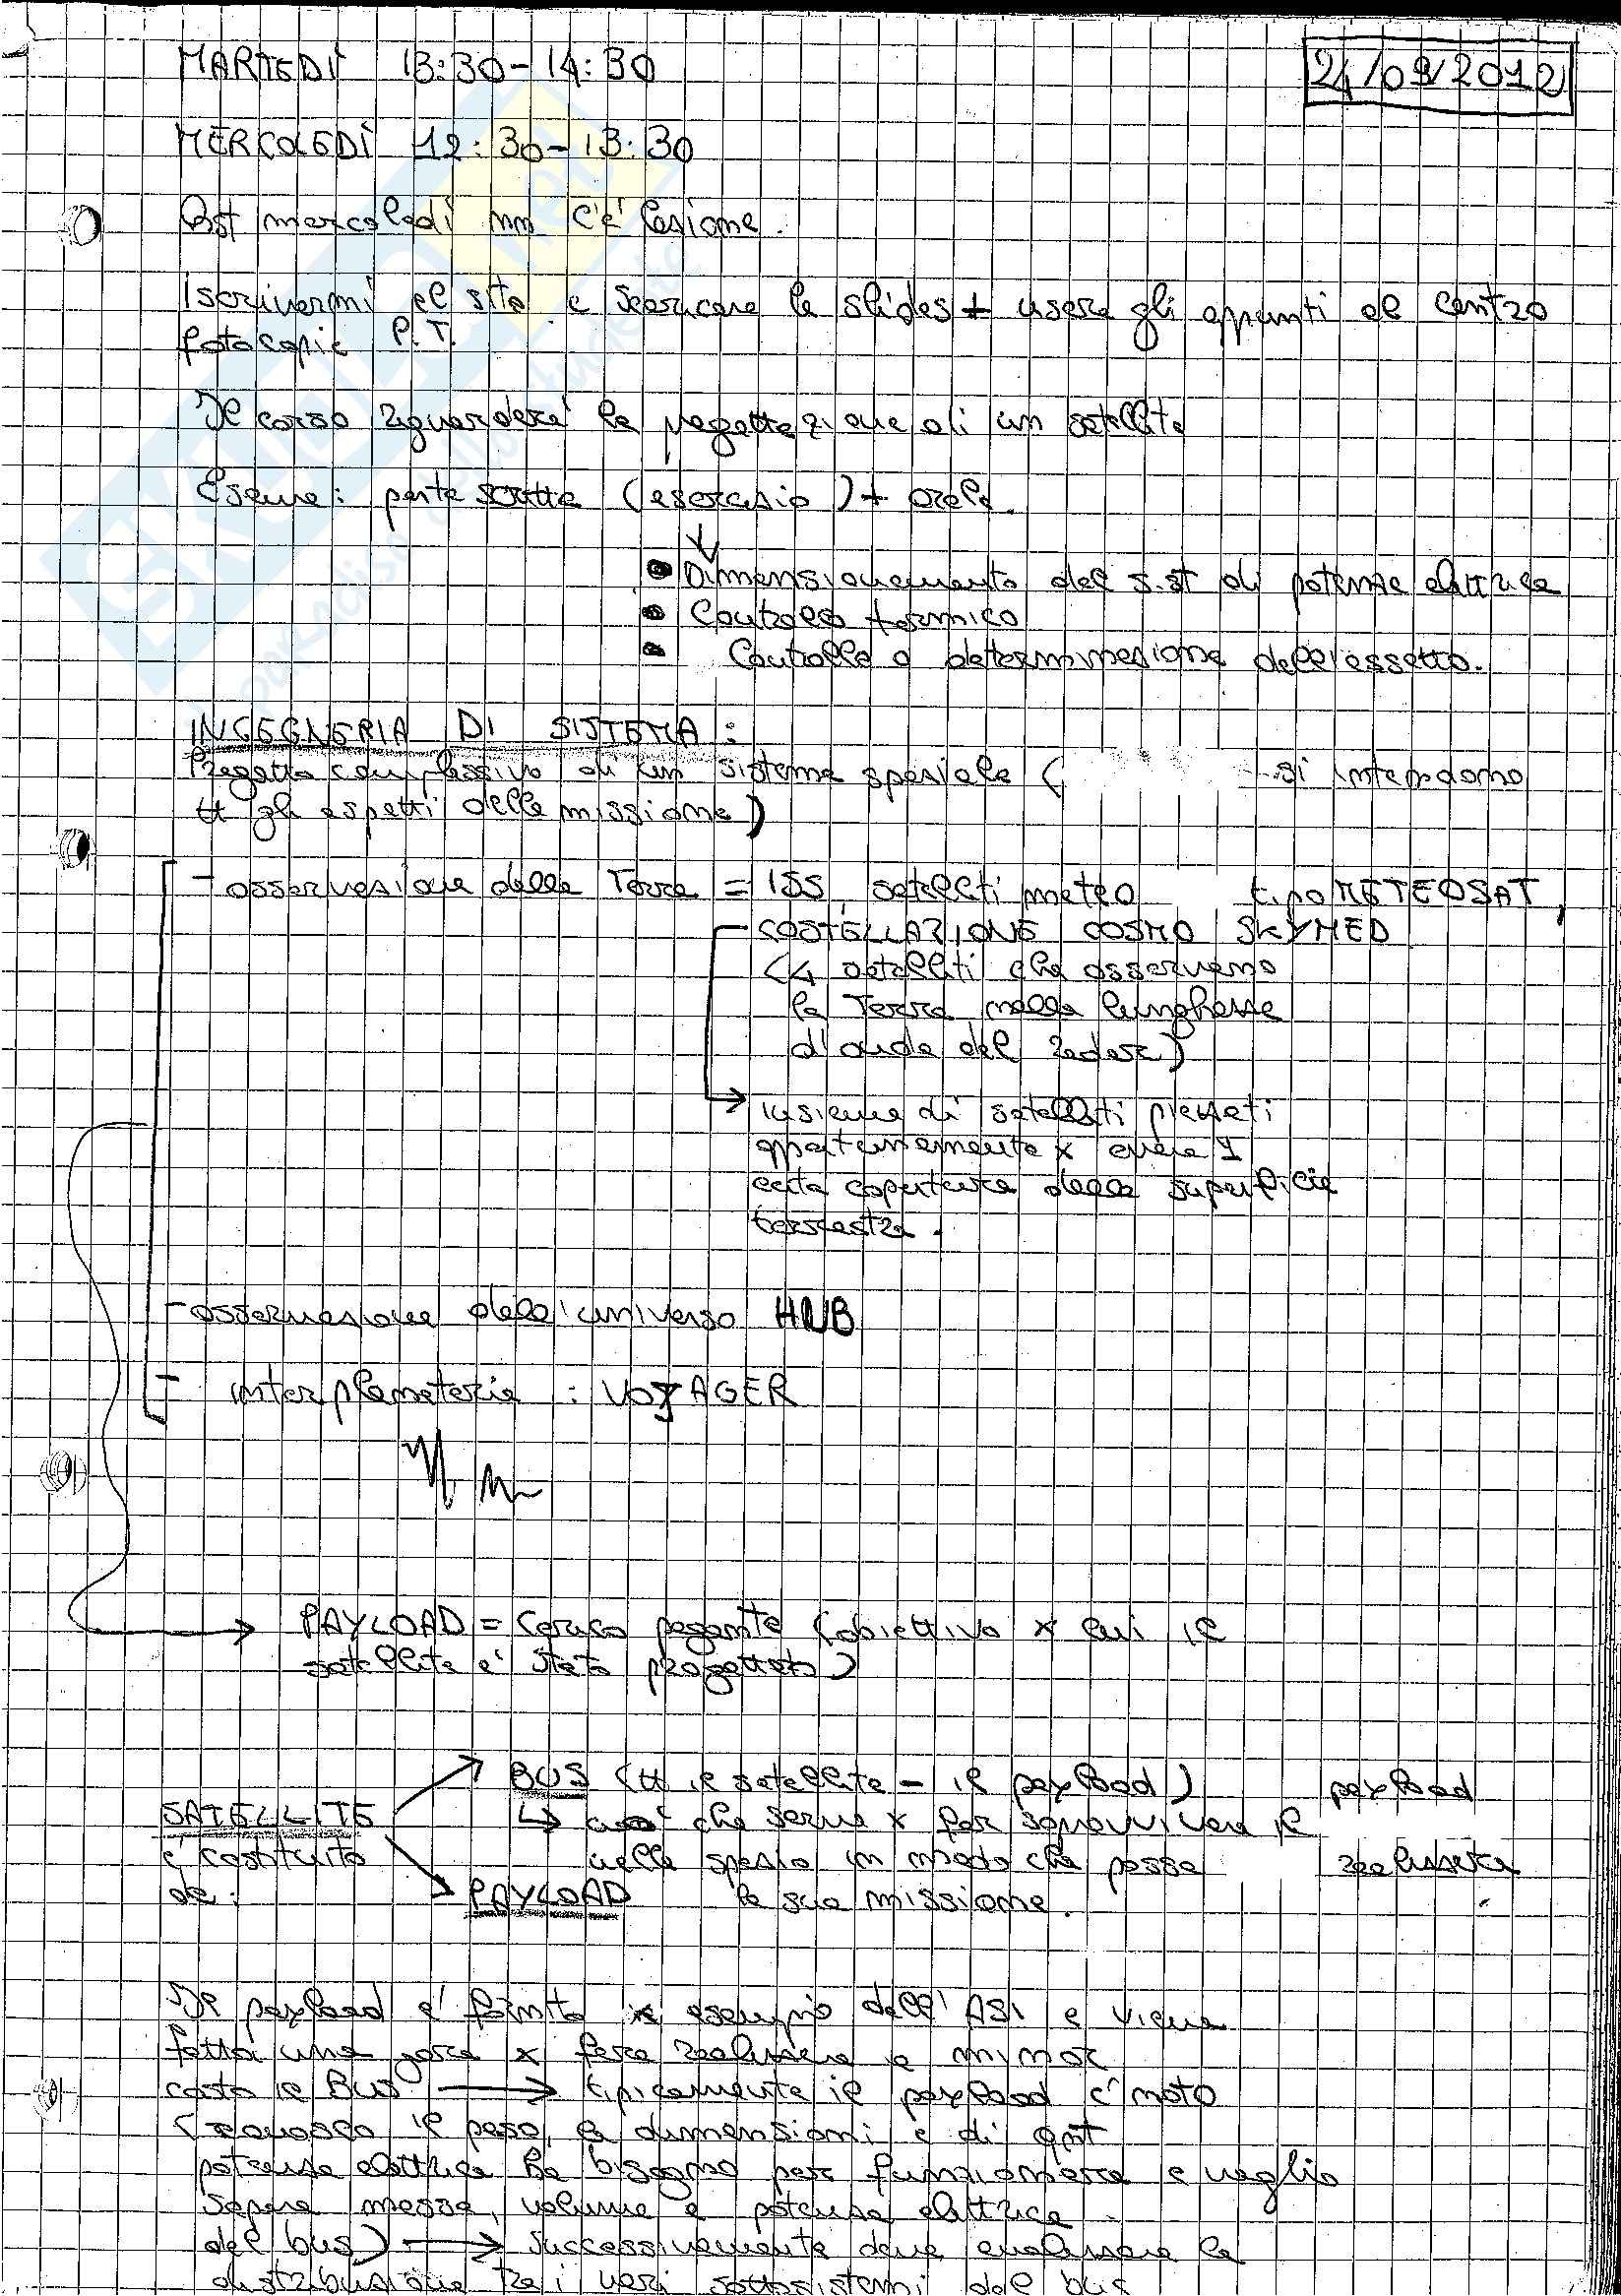 MARTEDÌ 13:30-14:30
24/09/2012
MERCOLEDÌ 12:30-13:30
Qst mercoledì nn c'è lezione.
Iscrivermi al sito e scaricare le slides + usare gli appunti al centro
fotocopie P.T.
Il corso riguarderà la progettazione di un satellite
Esame: parte scritta (esercizio) + orale.
↓
• Dimensionamento del sist di potenza elettrica
• Controllo termico
• Controllo e determinazione dell'assetto.
INGEGNERIA DI SISTEMA:
Progetto complessivo di un sistema spaziale ( si intendono
tt gli aspetti della missione)
- osservazione della Terra = ISS, satelliti meteo tipo METEOSAT,
COSTELLAZIONE COSMO SKYMED
(4 satelliti che osservano
la Terra nella lunghezza
d'onda del radar)
→ insieme di satelliti piazzati
opportunamente x avere 1
certa copertura della superficie
terrestre.
- osservazione dell'universo HUB
- interplanetaria: VOYAGER
→ PAYLOAD = carico pagante (obiettivo x cui il
satellite è stato progettato)
BUS (tt il satellite - il payload) payload
SATELLITE ↳ che serve x far sopravvivere il
è costituito nello spazio in modo che possa realizzare
da: PAYLOAD la sua missione.
Il payload è fornito x esempio dall'ASI e viene
fatta una gara x fare realizzare a minor
costo il BUS → tipicamente il payload è noto
(conosco il peso, le dimensioni e di qnt
potenza elettrica ha bisogno per funzionare e voglio
sapere massa, volume e potenza elettrica
del bus) → Successivamente devo analizzare la
distribuzione tra i vari sottosistemi del bus